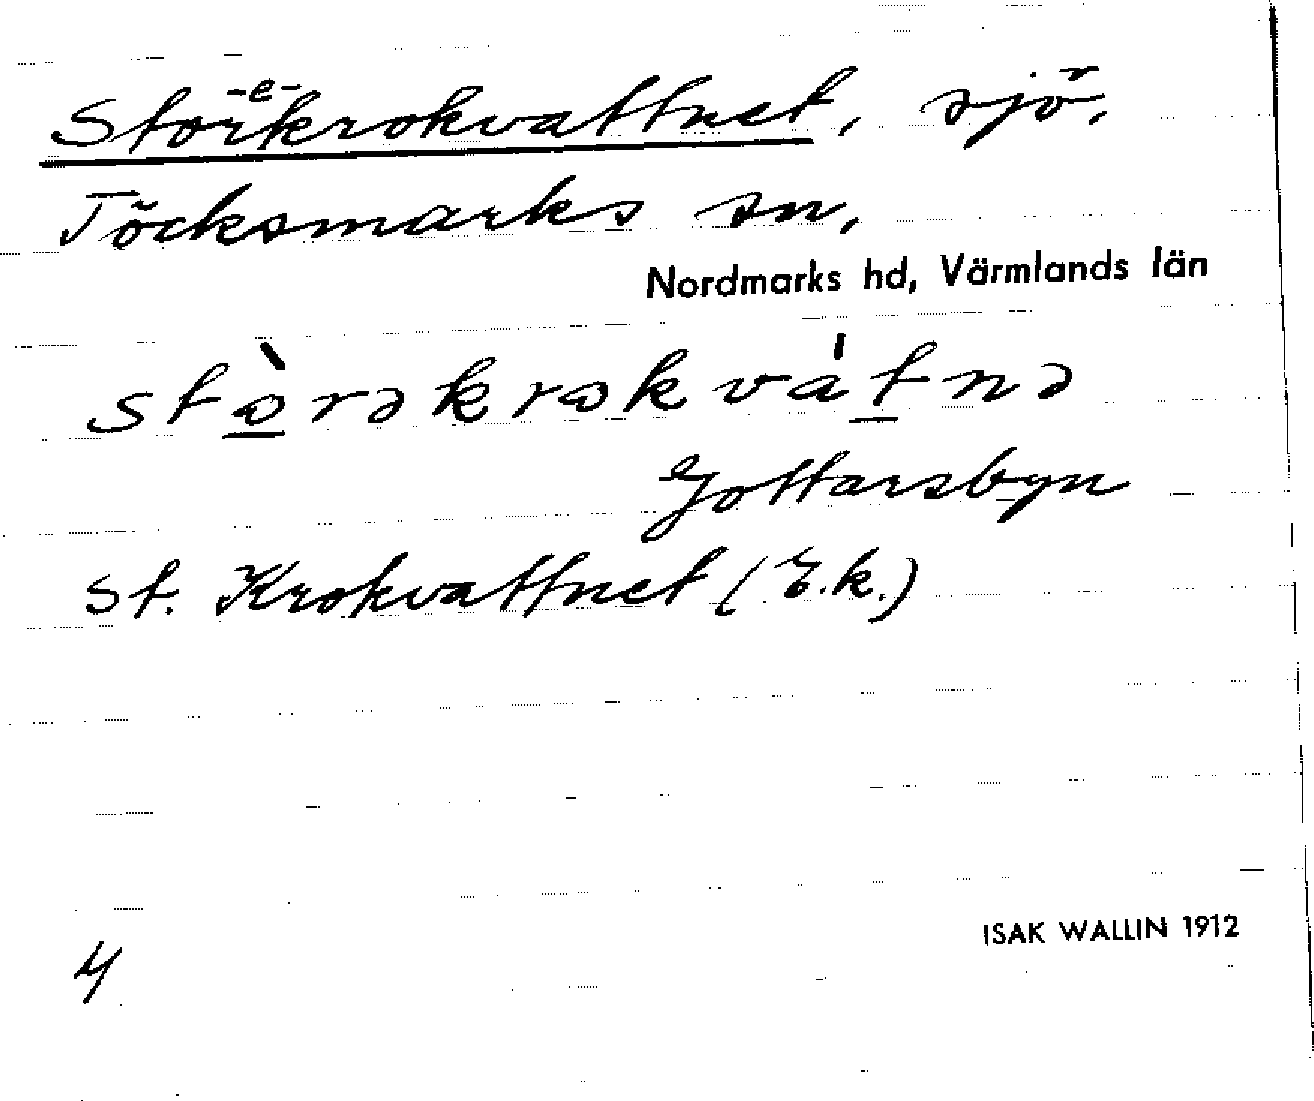 Stor-e-krokvattnet, sjö,
Töcksmarks sn,
Nordmarks hd, Värmlands län
stòrəkrokvátnə
Gottarsbyn
St. Krokvattnet (E.k.)
ISAK WALLIN 1912
4